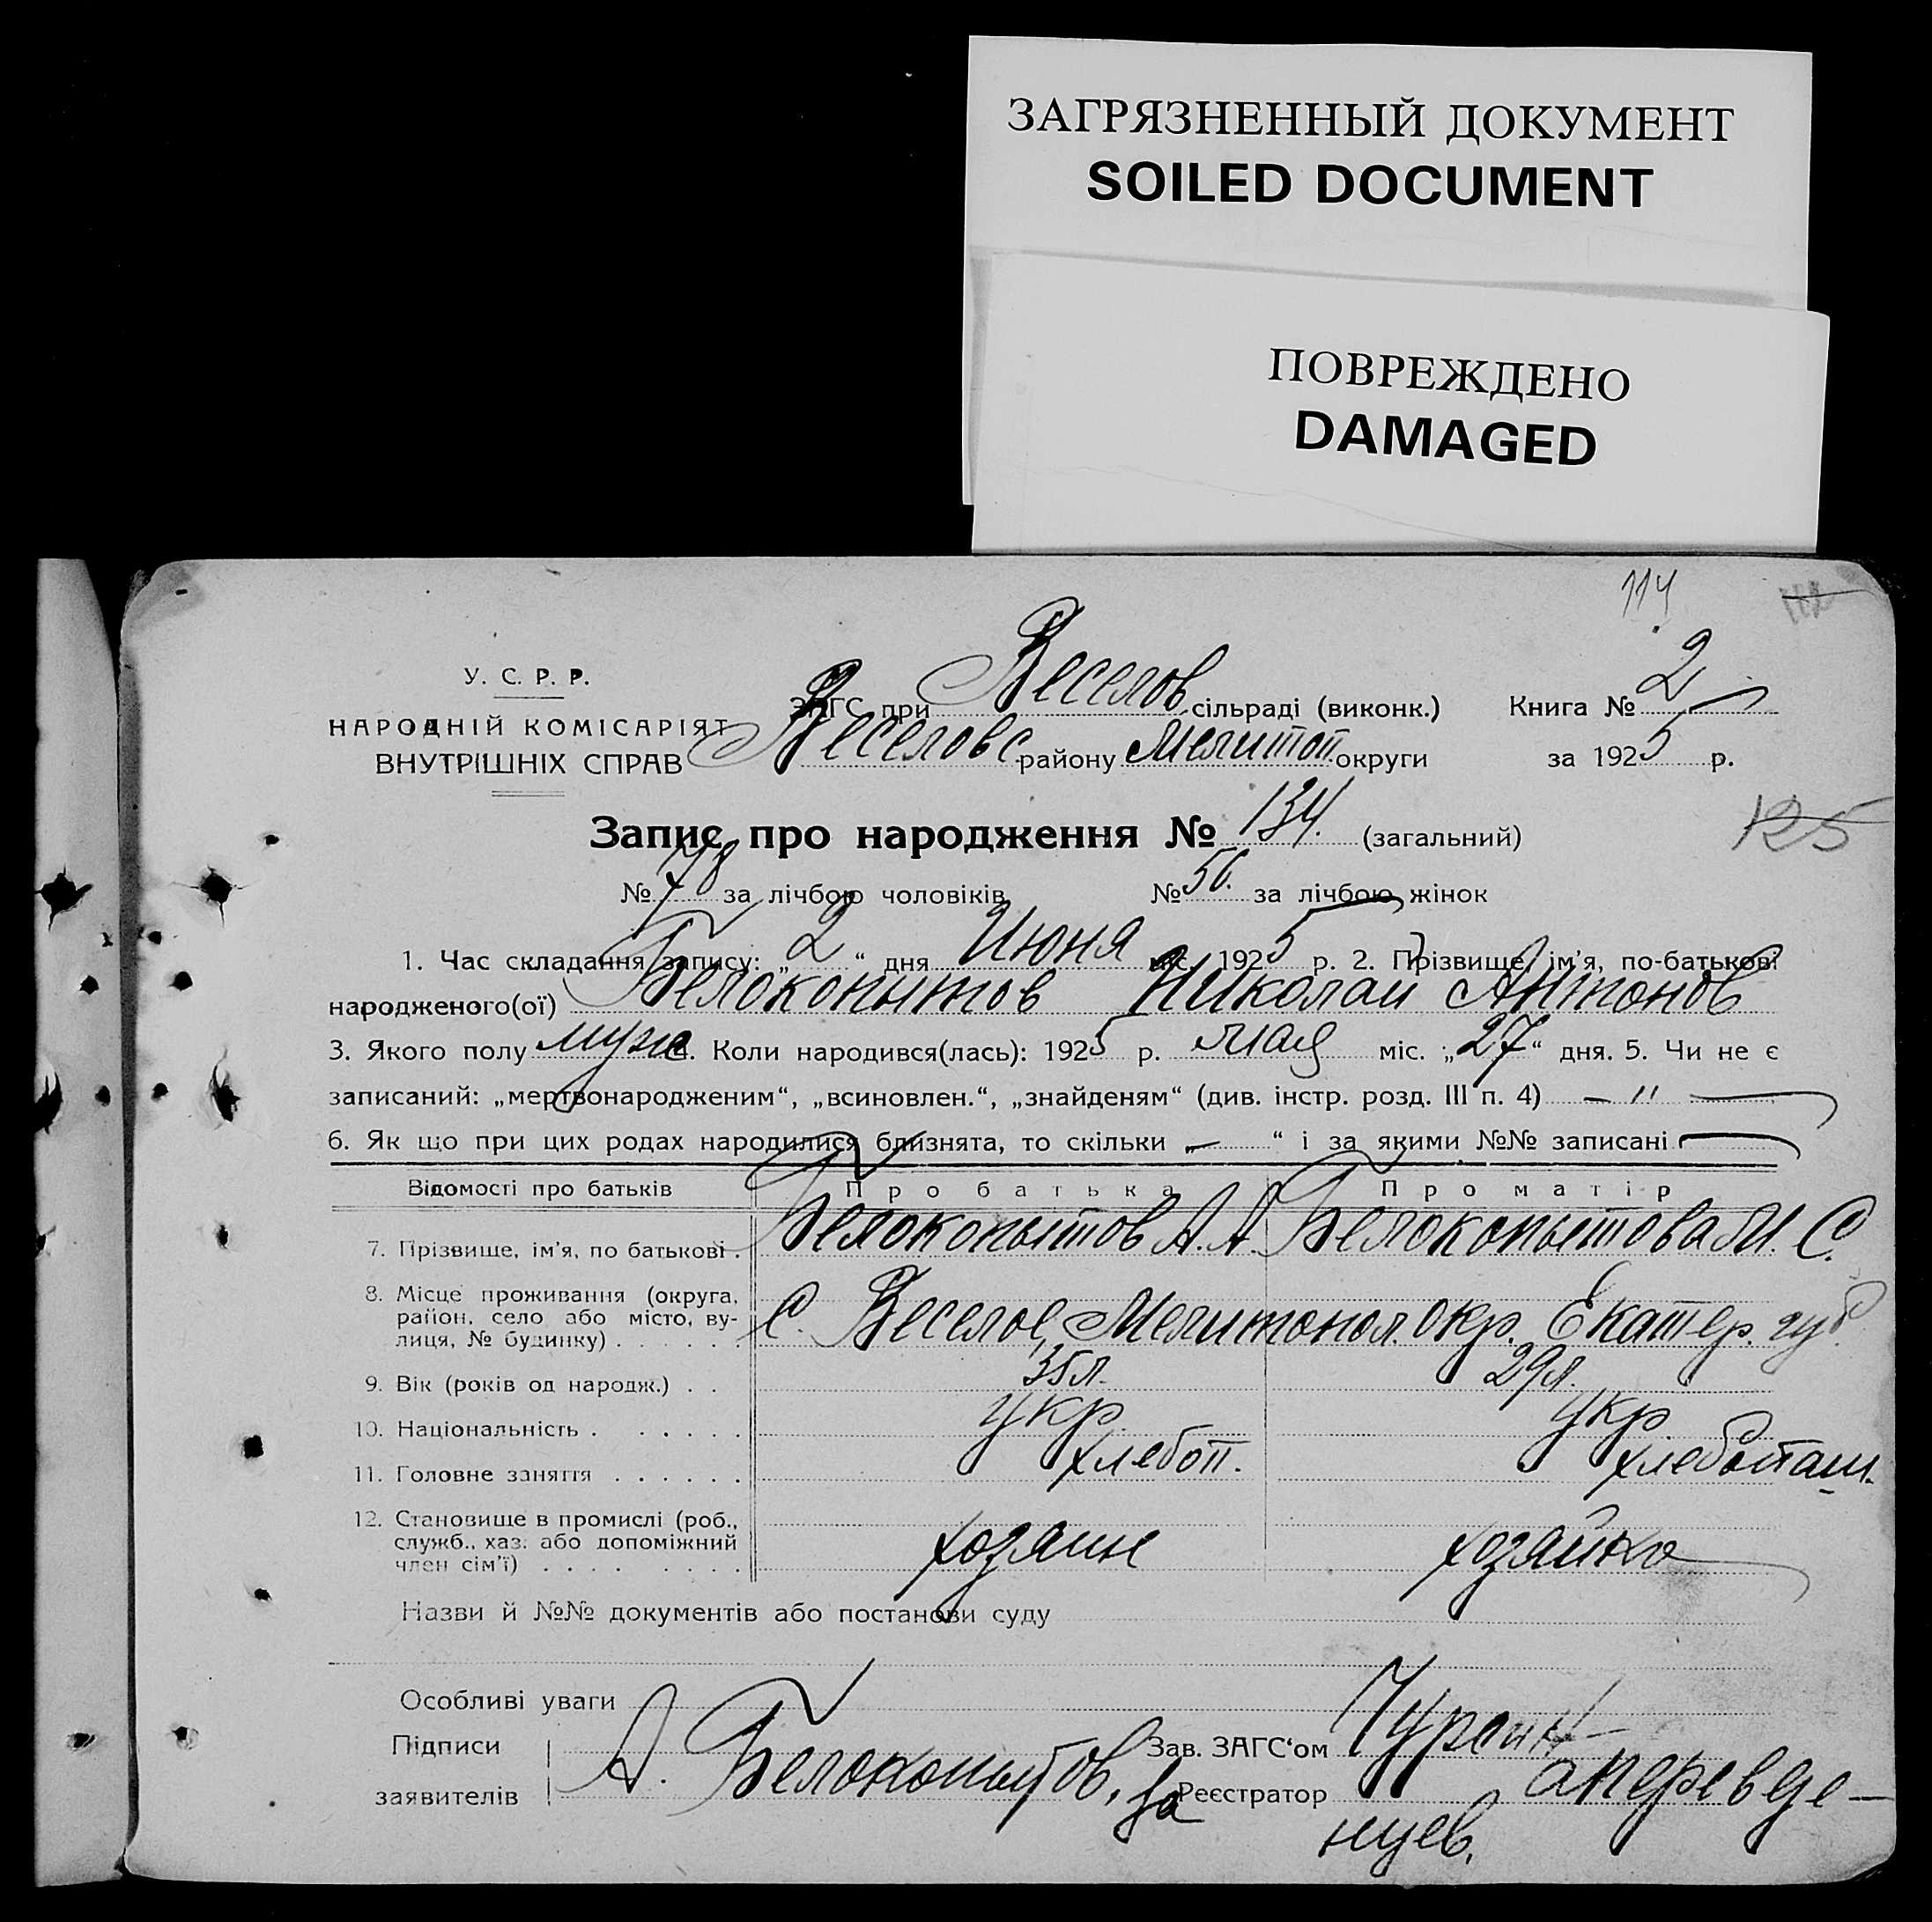 ЗАГРЯЗНЕННЫЙ ДОКУМЕНТ
SOILED DOCUMENT
ПОВРЕЖДЕНО
DAMAGED
114
У. С. Р. Р.
НАРОДНІЙ КОМІСАРІЯТ
ВНУТРІШНІХ СПРАВ
ЗАГС при Веселов сільраді (виконк.) Книга № 2
Веселовс району Мелитоп. округи за 1925 р.
Запис про народження № 134. (загальний)
125
№ 78 за лічбою чоловіків № 56. за лічбою жінок
1. Час складання запису: „2“ дня Июня міс. 1925 р. 2. Прізвище, ім'я, по-батькові
народженого(ої) Белокопытов Николай Антонов
3. Якого полу муж 4. Коли народився(лась): 1925 р. мая міс. „27“ дня. 5. Чи не є
записаний: „мертвонародженим“, „всиновлен.“, „знайденям“ (див. інстр. розд. III п. 4) — "
6. Як що при цих родах народилися близнята, то скільки „—“ і за якими №№ записані
Відомості про батьків Про батька Про матір
7. Прізвище, ім'я, по батькові . Белокопытов А. А. Белокопытова М. С.
8. Місце проживання (округа,
район, село або місто, ву-
лиця, № будинку) . . . . . . С. Веселое, Мелитопол. окр. Екатер. губ
9. Вік (років од народж.) . . 35 л. 29 л.
10. Національність . . . . . . укр укр
11. Головне заняття . . . . . . хлебоп. хлебопаш.
12. Становище в промислі (роб.,
служб., хаз. або допоміжний
член сім'ї) . . . . . . . . хозяин хозяйка
Назви й №№ документів або постанови суду
Особливі уваги
Підписи
заявителів
А. Белокопытов,
Зав. ЗАГС'ом
за Реєстратор